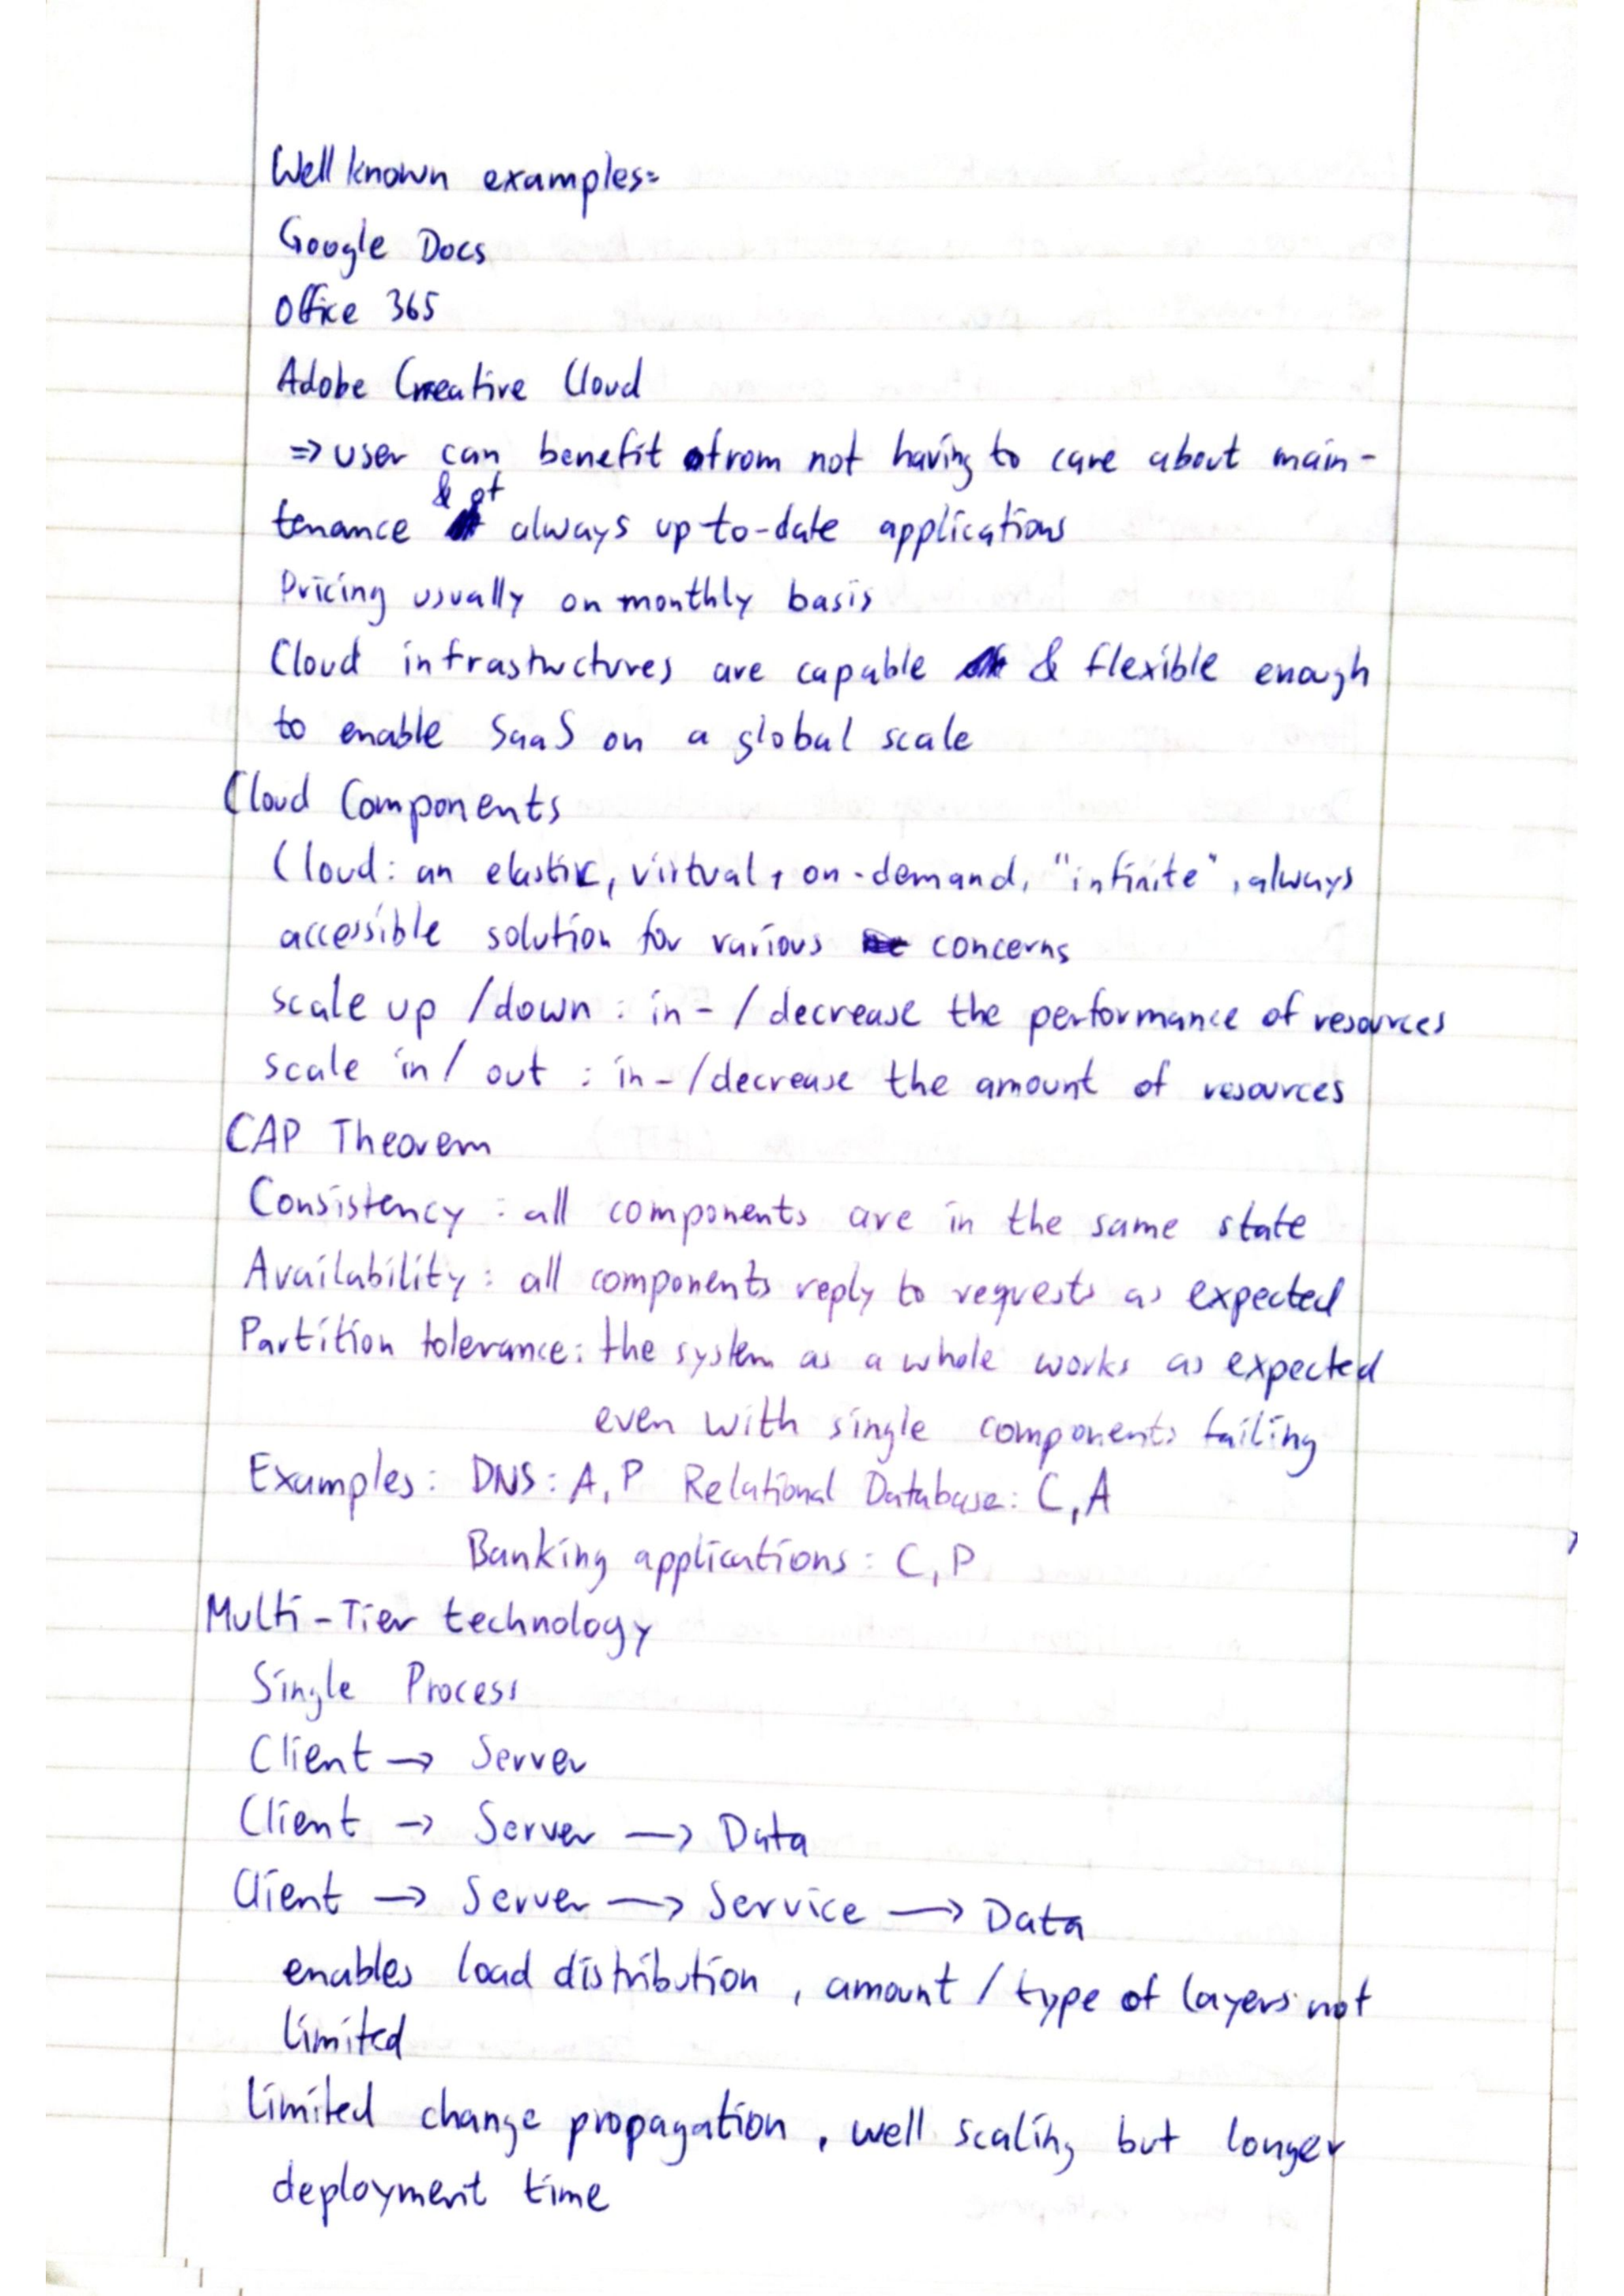 Well known examples:
Google Docs
Office 365
Adobe Creative Cloud
=> user can benefit from not having to care about main-
tenance & of always up-to-date applications
Pricing usually on monthly basis
Cloud infrastructures are capable & flexible enough
to enable SaaS on a global scale
Cloud Components
Cloud: an elastic, virtual, on-demand, "infinite", always
accessible solution for various concerns
scale up /down : in- / decrease the performance of resources
scale in / out : in- /decrease the amount of resources
CAP Theorem
Consistency : all components are in the same state
Availability : all components reply to requests as expected
Partition tolerance: the system as a whole works as expected
even with single components failing
Examples: DNS: A, P Relational Database: C, A
Banking applications: C, P
Multi-Tier technology
Single Process
Client → Server
Client → Server → Data
Client → Server → Service → Data
enables load distribution, amount / type of layers not
limited
limited change propagation, well scaling but longer
deployment time